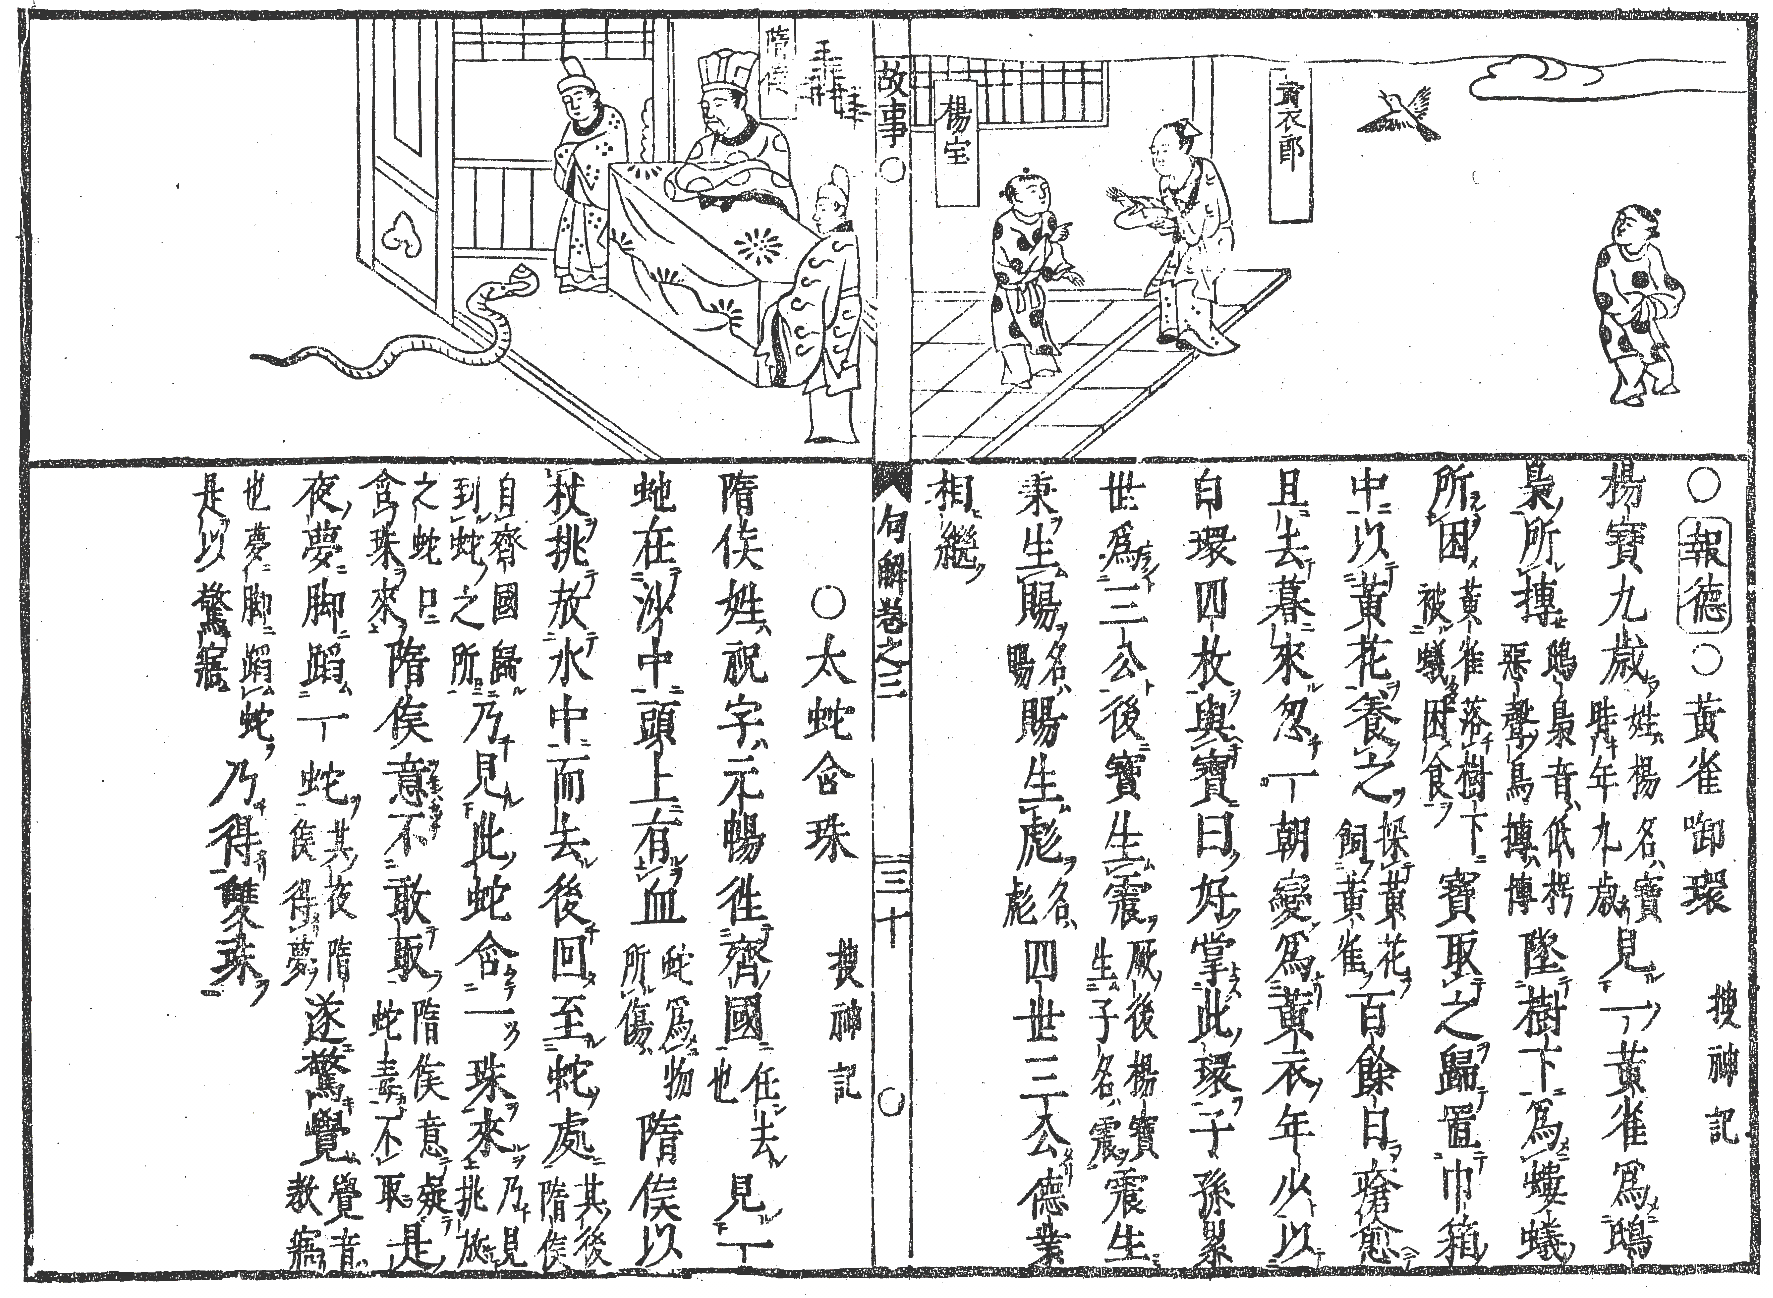 黃衣郎
楊宝
○報德○黃雀啣環 搜神記
楊寶九歲姓楊名寶時年九歲見一黃雀爲鴟
梟所搏鴟梟音低枵惡聲鳥搏博墜樹下爲螻蟻
所困黃雀落樹下被蟻困食寶取之歸置巾箱
中以黃花養之採黃花飼黃雀百餘日瘡愈
且去暮來忽一朝變爲黃衣年少以
白環四枚與寶曰好掌此環子孫累
世爲三公後寶生震厥後楊寶生子名震震生
秉生賜名賜賜生彪名彪四世三公德業
相繼
故事○ 句解卷之三 三十 ○
隋侯
○太蛇含珠 搜神記
隋侯姓祝字元暢徃齊國任去也見一
虵在沙中頭上有血蛇爲物所傷隋侯以
杖挑放水中而去後回至蛇處其後隋侯
自齊國歸到蛇之所乃見此蛇含一珠來乃見挑放
之蛇口含珠來隋侯意不敢取隋侯意疑蛇毒不取是
夜夢脚蹈一蛇其夜隋侯得夢遂驚覺覺音教寤
也夢脚蹈蛇是以驚寤乃得雙珠